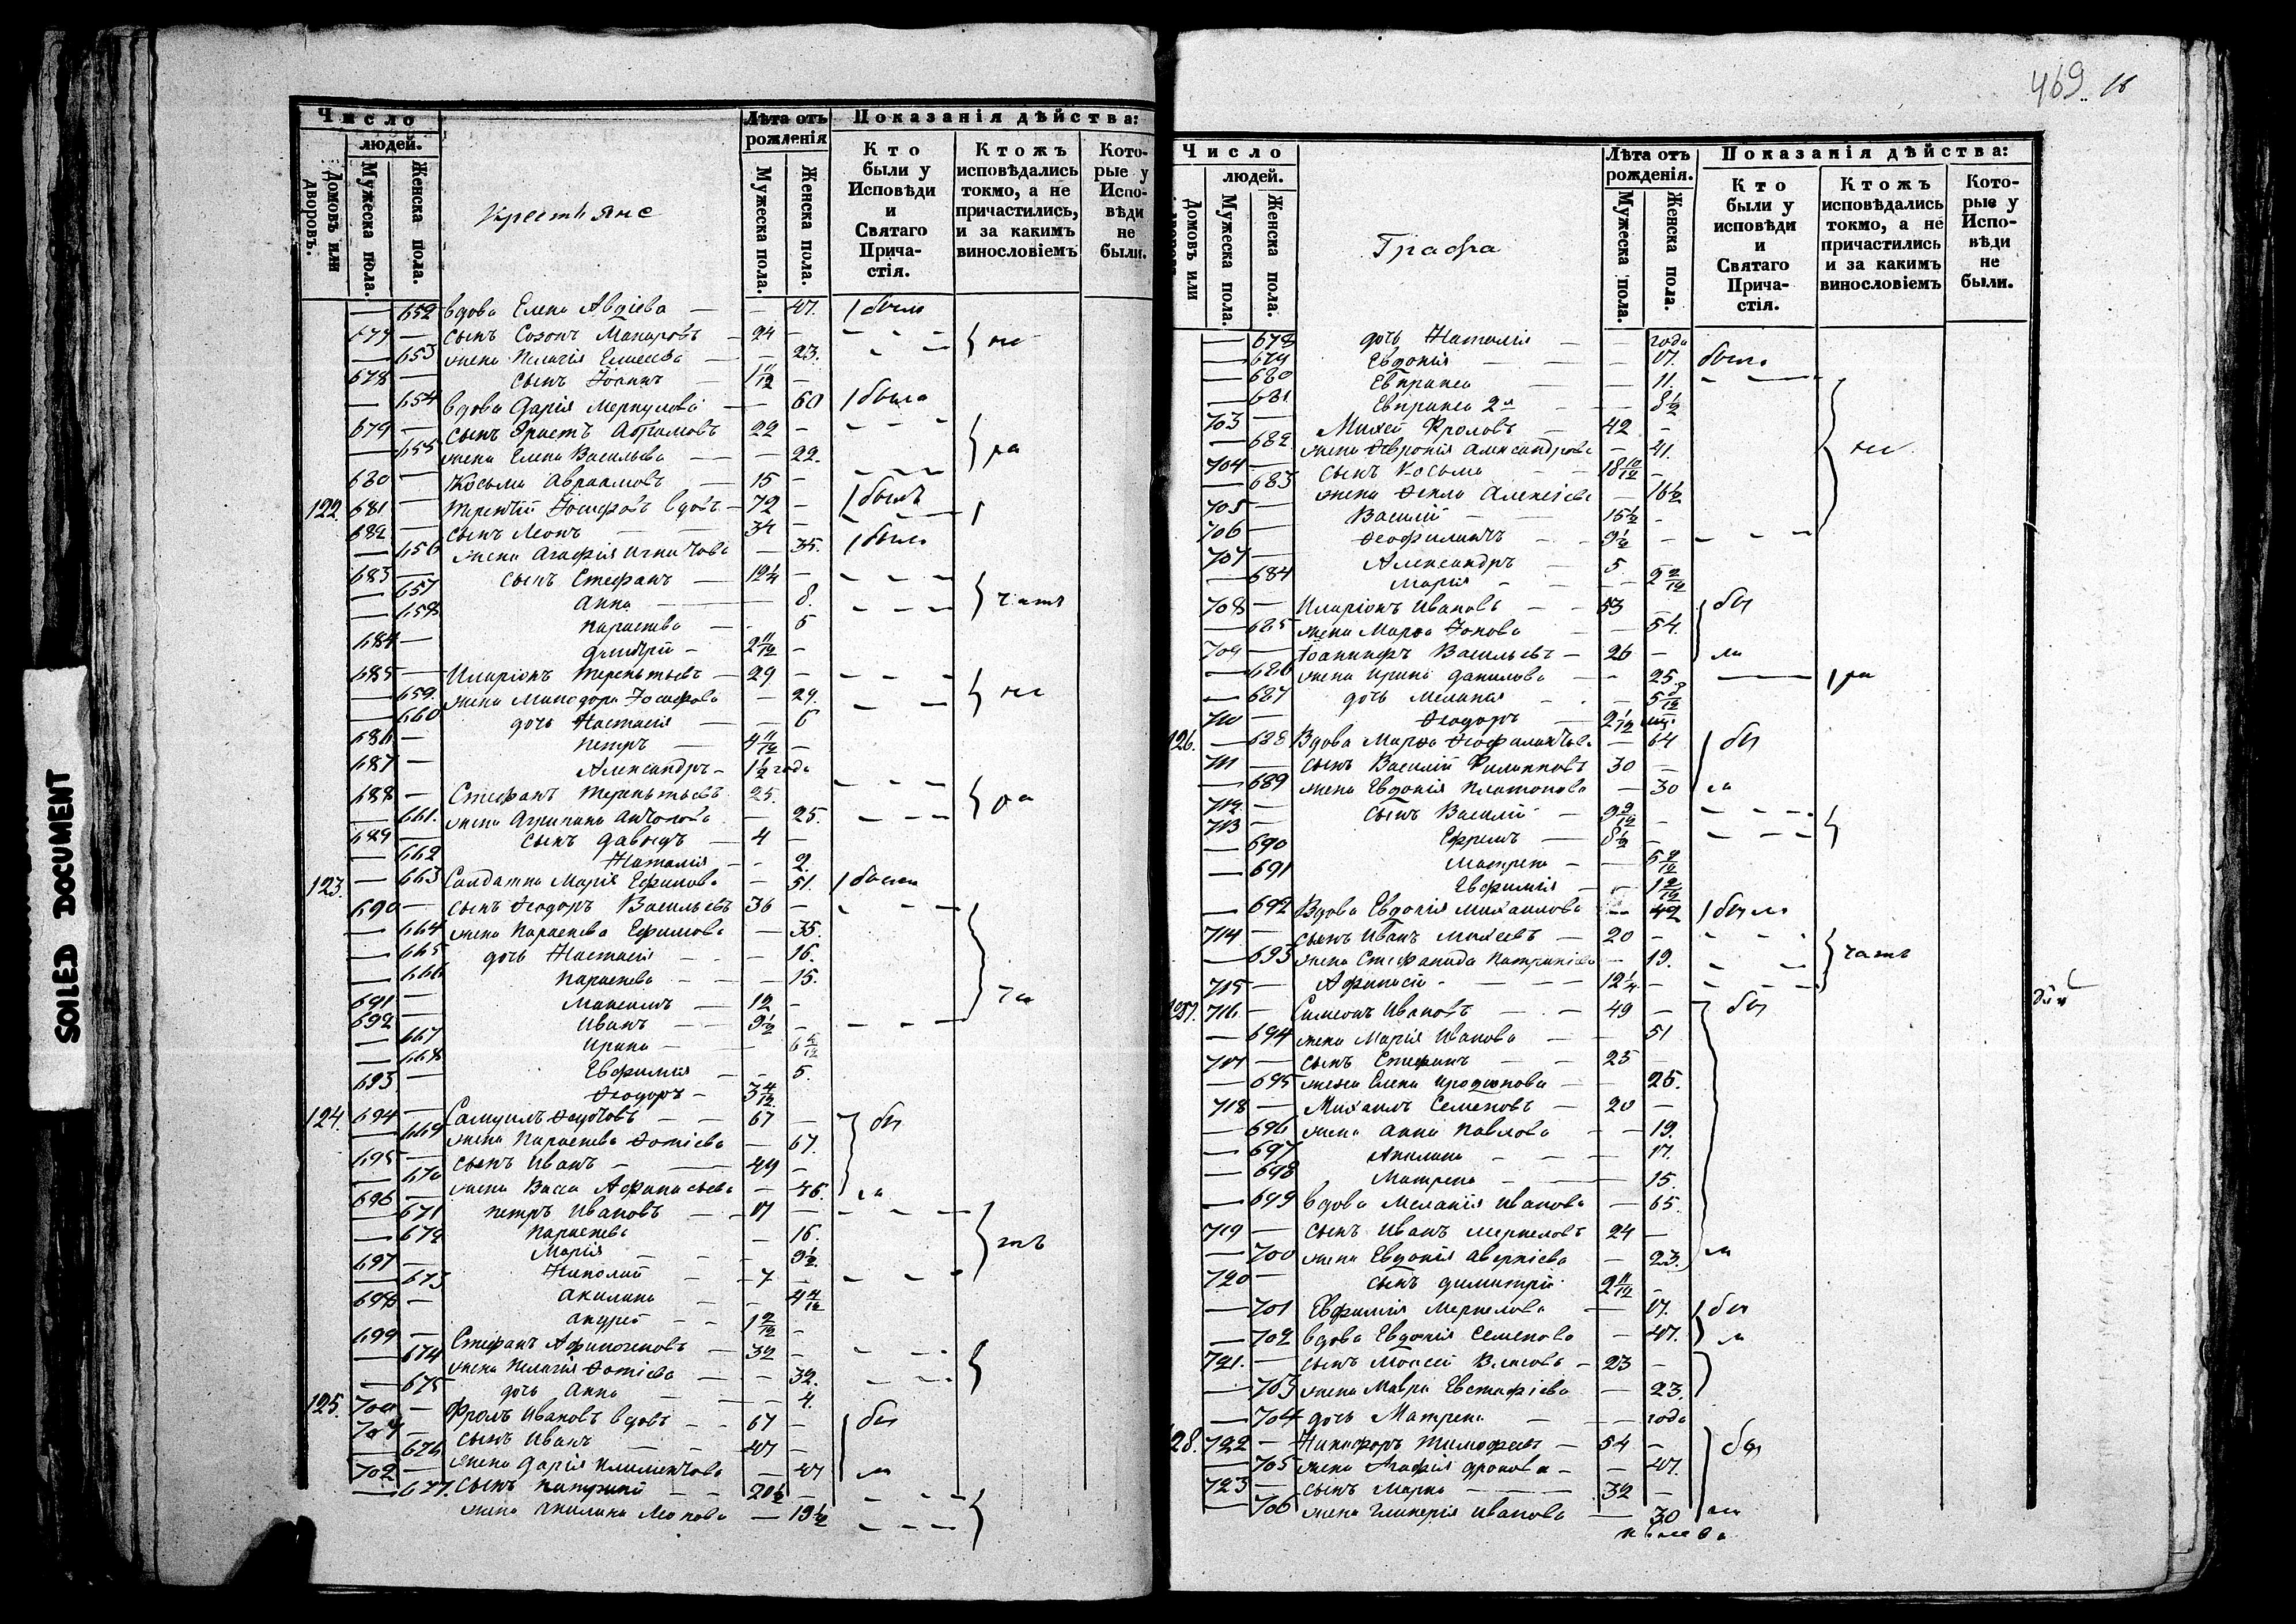 SOILED DOCUMENT
469
Число
людей.
Домовъ или дворовъ.
Мужеска пола.
Женска пола.
Крестьяне
Лѣта отъ рожденія
Мужеска пола.
Женска пола.
Показанія дѣйства:
Кто были у Исповѣди и Святаго Причастія.
Ктожъ исповѣдались токмо, а не причастились, и за какимъ винословіемъ
Которые у Исповѣди не были.
— 652 вдова Елена Авдіева — — 47. была
677 — сынъ Созонъ Макаровъ — 24
— 653 жена Пелагія — — 23. не
678 — сынъ Іоаннъ — 1 11/12 —
— 654 вдова Дарія Меркулова — 60 была
679 — сынъ Эрастъ 22 —
— 655 жена Елена Васильева — — 22. ра
680 — Косьма Авраамовъ — 15 —
122. 681 — Терентій Іосифовъ вдовъ — 72 — былъ
682 — сынъ Леонъ — 34 —
— 656 жена Агафія Игнатова — 35. была
683 — сынъ Стефанъ — 12 1/4 —
— 657 Анна — 8.
— 658 Параскева — 5
684 — Дмитрій — 2 11/12 —
685 — Иларіонъ Терентьевъ — 29 —
— 659. жена Минодора Іосифова — 29. не
— 660 дочь Настасія — — 6
686 — Петръ — 4 11/12 —
687 — Александръ — 1 1/2 года
688 — Стефанъ Терентьевъ 25.
— 661. жена Агрипина Антонова — 25. ра
689 — сынъ Давыдъ — 4 —
— 662 Наталія — — 2.
123. — 663 Салдатка Марія Ефимова — 51. была
690 — сынъ Ѳеодоръ Васильевъ 36 —
— 664 жена Параскева Ефимова — 35.
— 665 дочь Настасія — — 16.
— 666 Параскева — — 15.
691 — Максимъ — 12 —
692 — Иванъ — 9 1/2 —
— 667 Ирина —
— 668 Евфимія — — 5.
693 — Ѳеодоръ — 3 4/12
124. 694 — Самуилъ — 67 — бы
— 669 жена Параскева Фотіева — 67.
695 — сынъ Иванъ — 49 —
— 670 жена Васса Афанасьева — 46. ли
696 — Петръ Ивановъ — 17 —
— 671 Параскева — 16.
— 672 Марія — — 9 1/2 
697 — Николай — 7 —
— 673 Акилина — —
698 — Андрей — 1 2/12 —
699 — Стефанъ Афиногеновъ — 32 —
— 674 жена Пелагія Фотіева — — 32.
— 675 дочь Анна — — 4.
125. 700 — Фролъ Ивановъ вдовъ — 67 — бы
701 — сынъ Иванъ — 47 —
— 676 жена Дарія Климентова — 47 ли
702 — сынъ — 20 1/2 —
— 677. жена Акилина Леонова — 19 1/2
Число
людей.
Домовъ или
Мужеска пола.
Женска пола.
Графа
Лѣта отъ рожденія.
Мужеска пола.
Женска пола.
Показанія дѣйства:
Кто были у исповѣди и Святаго Причастія.
Ктожъ исповѣдались токмо, а не причастились и за какимъ винословіемъ
Которые у Исповѣди не были.
— 678 дочь Наталія — — года
— 679 Евдокія — — 17. была
— 680 Евпракса — — 11.
— 681 Евпракса 2я — 8 1/2
703 — Михей Фроловъ — 42 —
— 682 жена Ѳевронія Александрова — 41. не
704 — сынъ Косьма — 18 10/12 —
— 683 жена Ѳекла Алексіева — 16 1/2
705 — Василій — 15 1/2 —
706 — Ѳеофилактъ — 9 1/2 —
707 — Александръ — 5
— 684 Марія — — 2 2/12
708 — Иларіонъ Ивановъ — 53 — бы
— 685 жена Марѳа Іонова — 54.
709 — Васильевъ — 26 — ли
— 686 жена Ирина Данилова — — 25. ра
— 687 дочь Меланія — — 5 8/12
710 — Ѳеодоръ — 2 1/12
126. — 688 Вдова Марѳа Ѳеофилактова — 64 бы
711 — сынъ Василій Филипповъ 30 —
— 689 жена Евдокія Платонова — 30 ла
712 — сынъ Василій —
713 — Ефремъ — 8 1/2 —
— 690 Матрена — — 5 2/12
— 691 Евфимія — — 1 2/12
— 692 Вдова Евдокія Михаилова — 42 была
714 — сынъ Иванъ Михеевъ — 20 —
— 693 жена Стефанида — 19. тать
715 — Афанасій — 12 1/4 —
127. 716 — Симеонъ Ивановъ — 49 — бы
— 694 жена Марія Иванова — 51
717 — сынъ Стефанъ — 25 —
— 695 жена Елена Иродіонова — 25.
718 — Михаилъ Семеновъ — 20 —
— 696 жена Анна Павлова — 19.
— 697 Акилина — 17.
— 698 Матрена — 15.
— 699 вдова Меланія Иванова — 65.
719 — сынъ Иванъ 24 —
— 700 жена Евдокія Аверкіева — 23. ли
720 — сынъ Димитрій 2 11/12 —
— 701 Евфимія — 17. бы
— 702 вдова Евдокія Семенова — 47. ли
721. — сынъ Моисей Власовъ — 23 —
— 703 жена Мавра Евстафіева — 23.
— 704 дочь Матрена — — года
128. 722 — Никифоръ Тимофеевъ — 54 — бы
— 705 жена Агафія — 47.
723 — сынъ Марко — 32 —
— 706 жена Гликерія Иванова — 30 ли